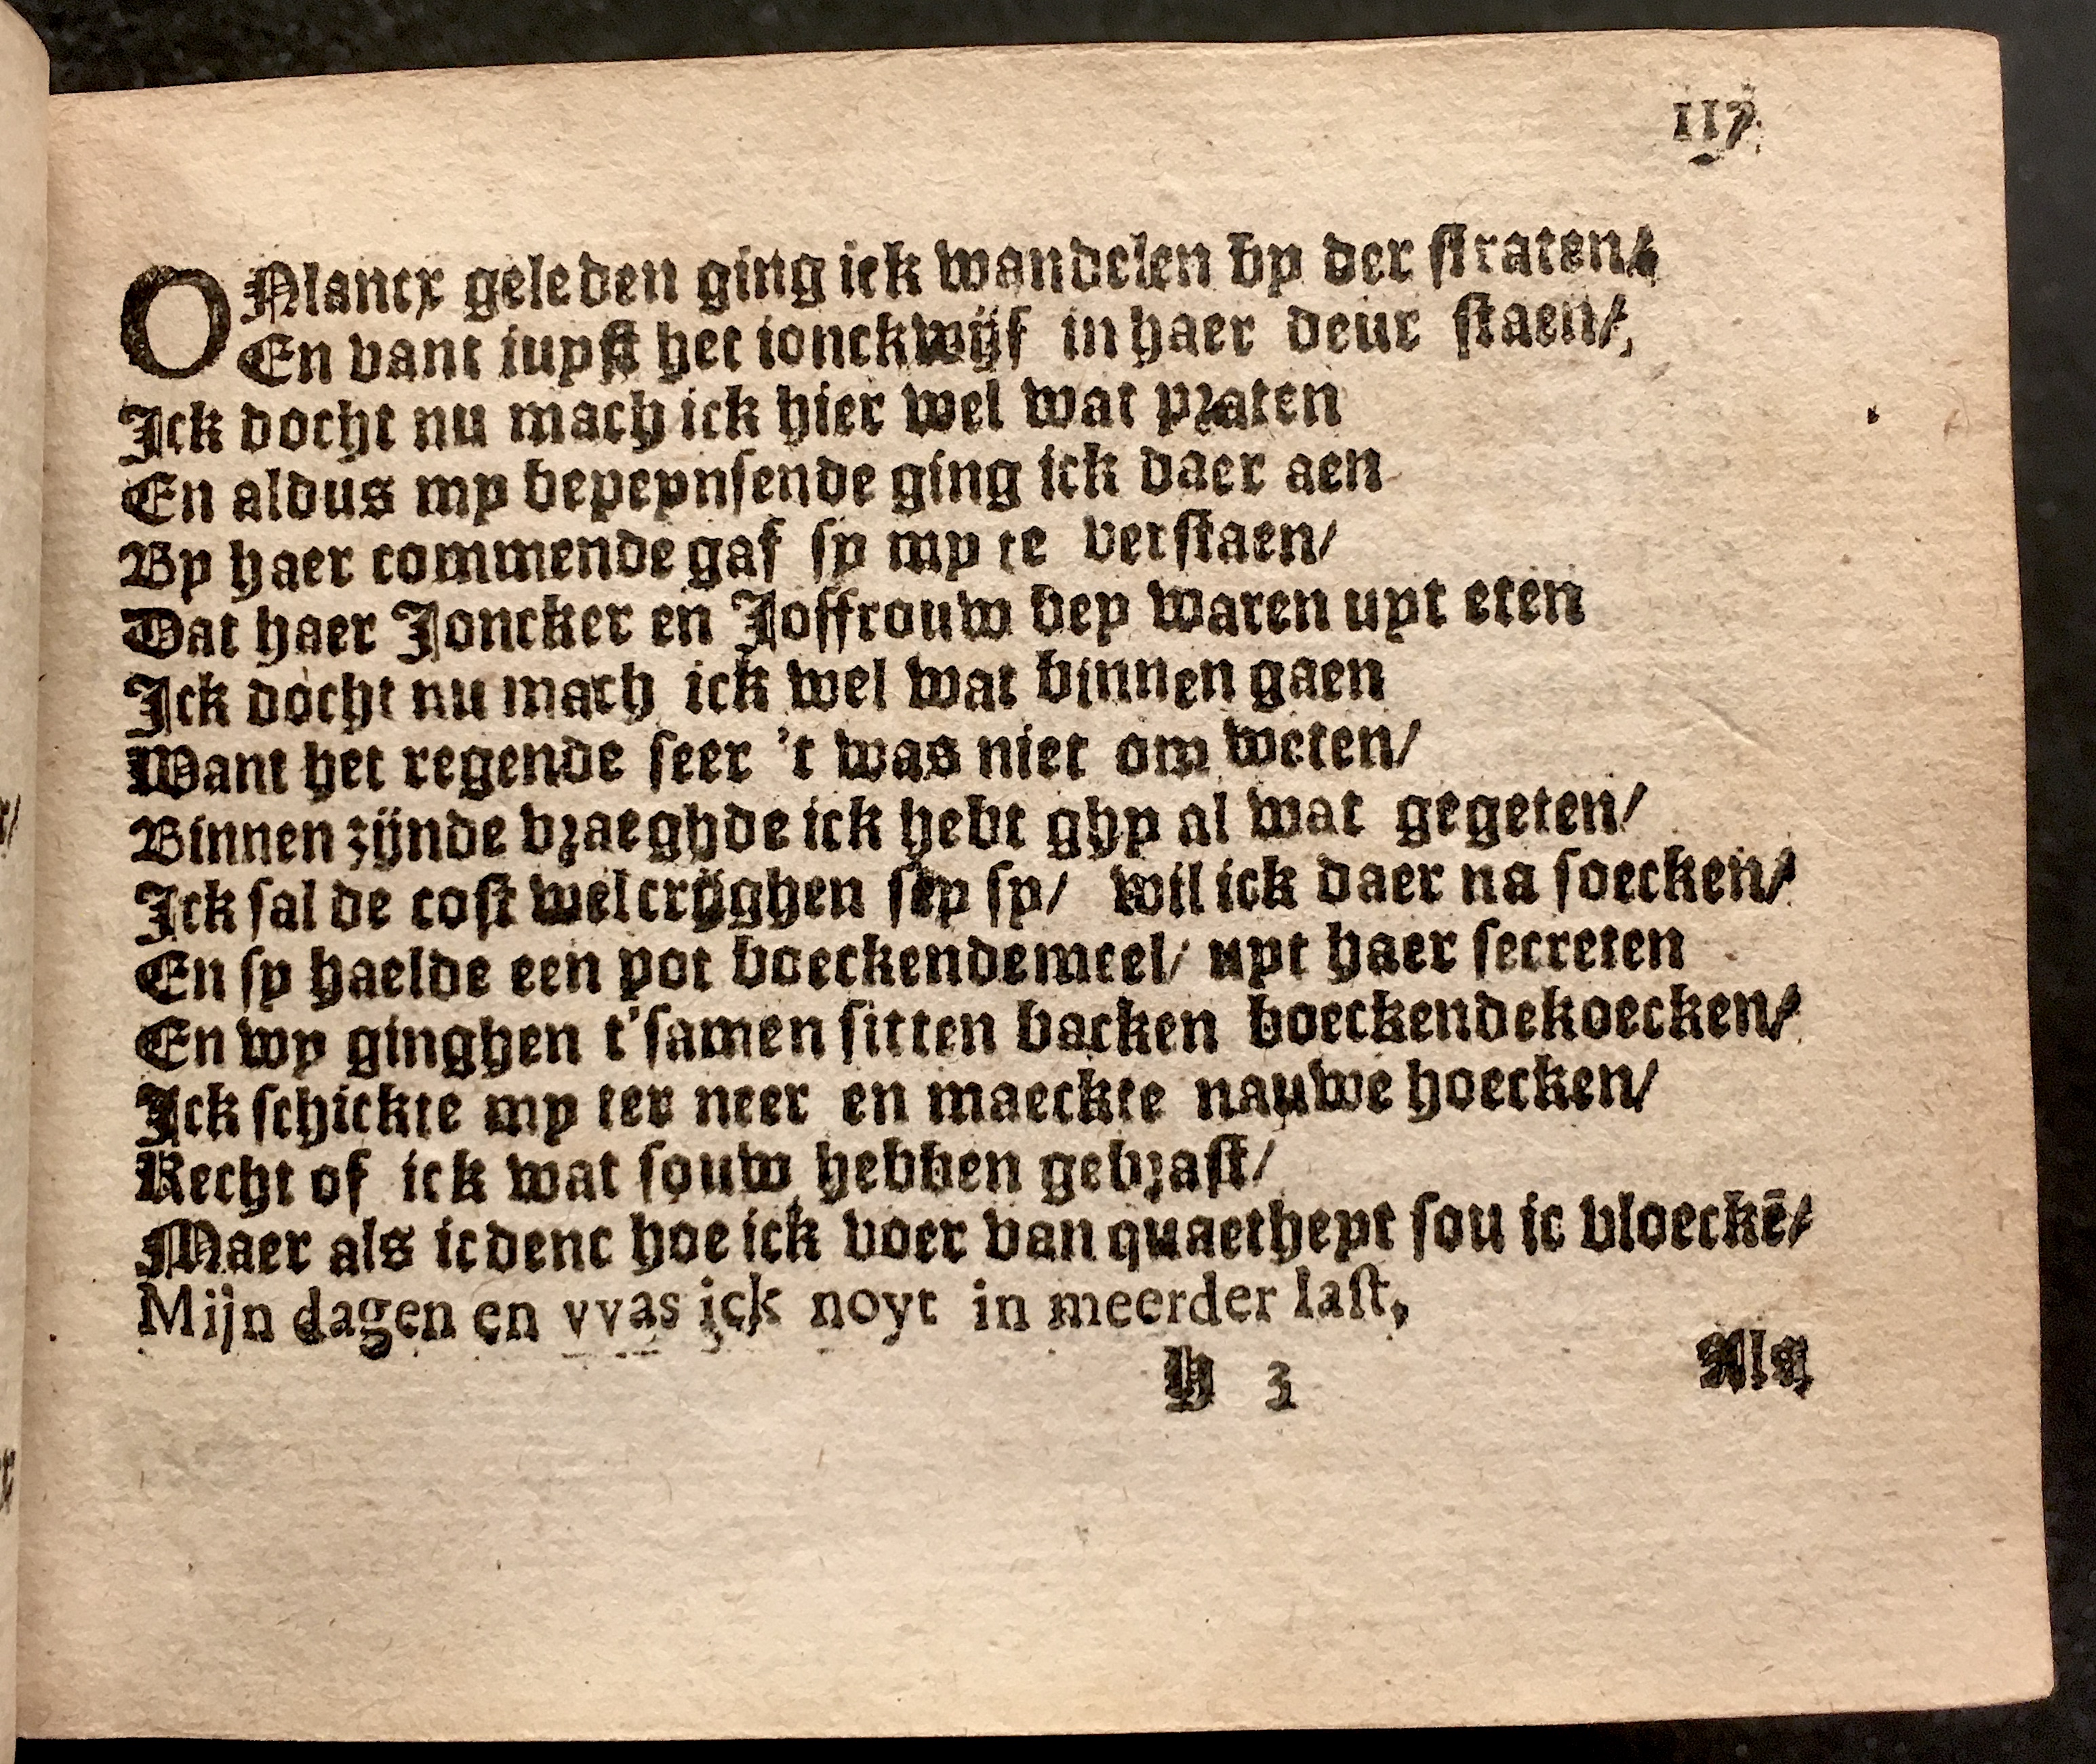 117
ONlancx geleden ging ick wandelen by der straten/
En vant iuyst het ionckwijf in haer deur staen/
Ick docht nu mach ick hier wel wat praten
En aldus my bepeynsende ging ick daer aen
By haer commende gaf sy my te verstaen/
Dat haer Joncker en Joffrouw bey waren uyt eten
Ick docht nu mach ick wel wat binnen gaen
Want het regende seer 't was niet om weten/
Binnen zijnde vraeghde ick hebt ghy al wat gegeten/
Ick sal de cost wel crijghen sey sy/ wil ick daer na soecken/
En sy haelde een pot boeckendemeel/ uyt haer secreten
En wy ginghen t'samen sitten backen boeckendekoecken/
Ick schickte my ter neer en maeckte nauwe hoecken/
Recht of ick wat souw hebben gebrast/
Maer als ic denc hoe ick voer van quaetheyt sou ic vloeckē/
Mijn dagen en vvas ick noyt in meerder last,
H 3
Als